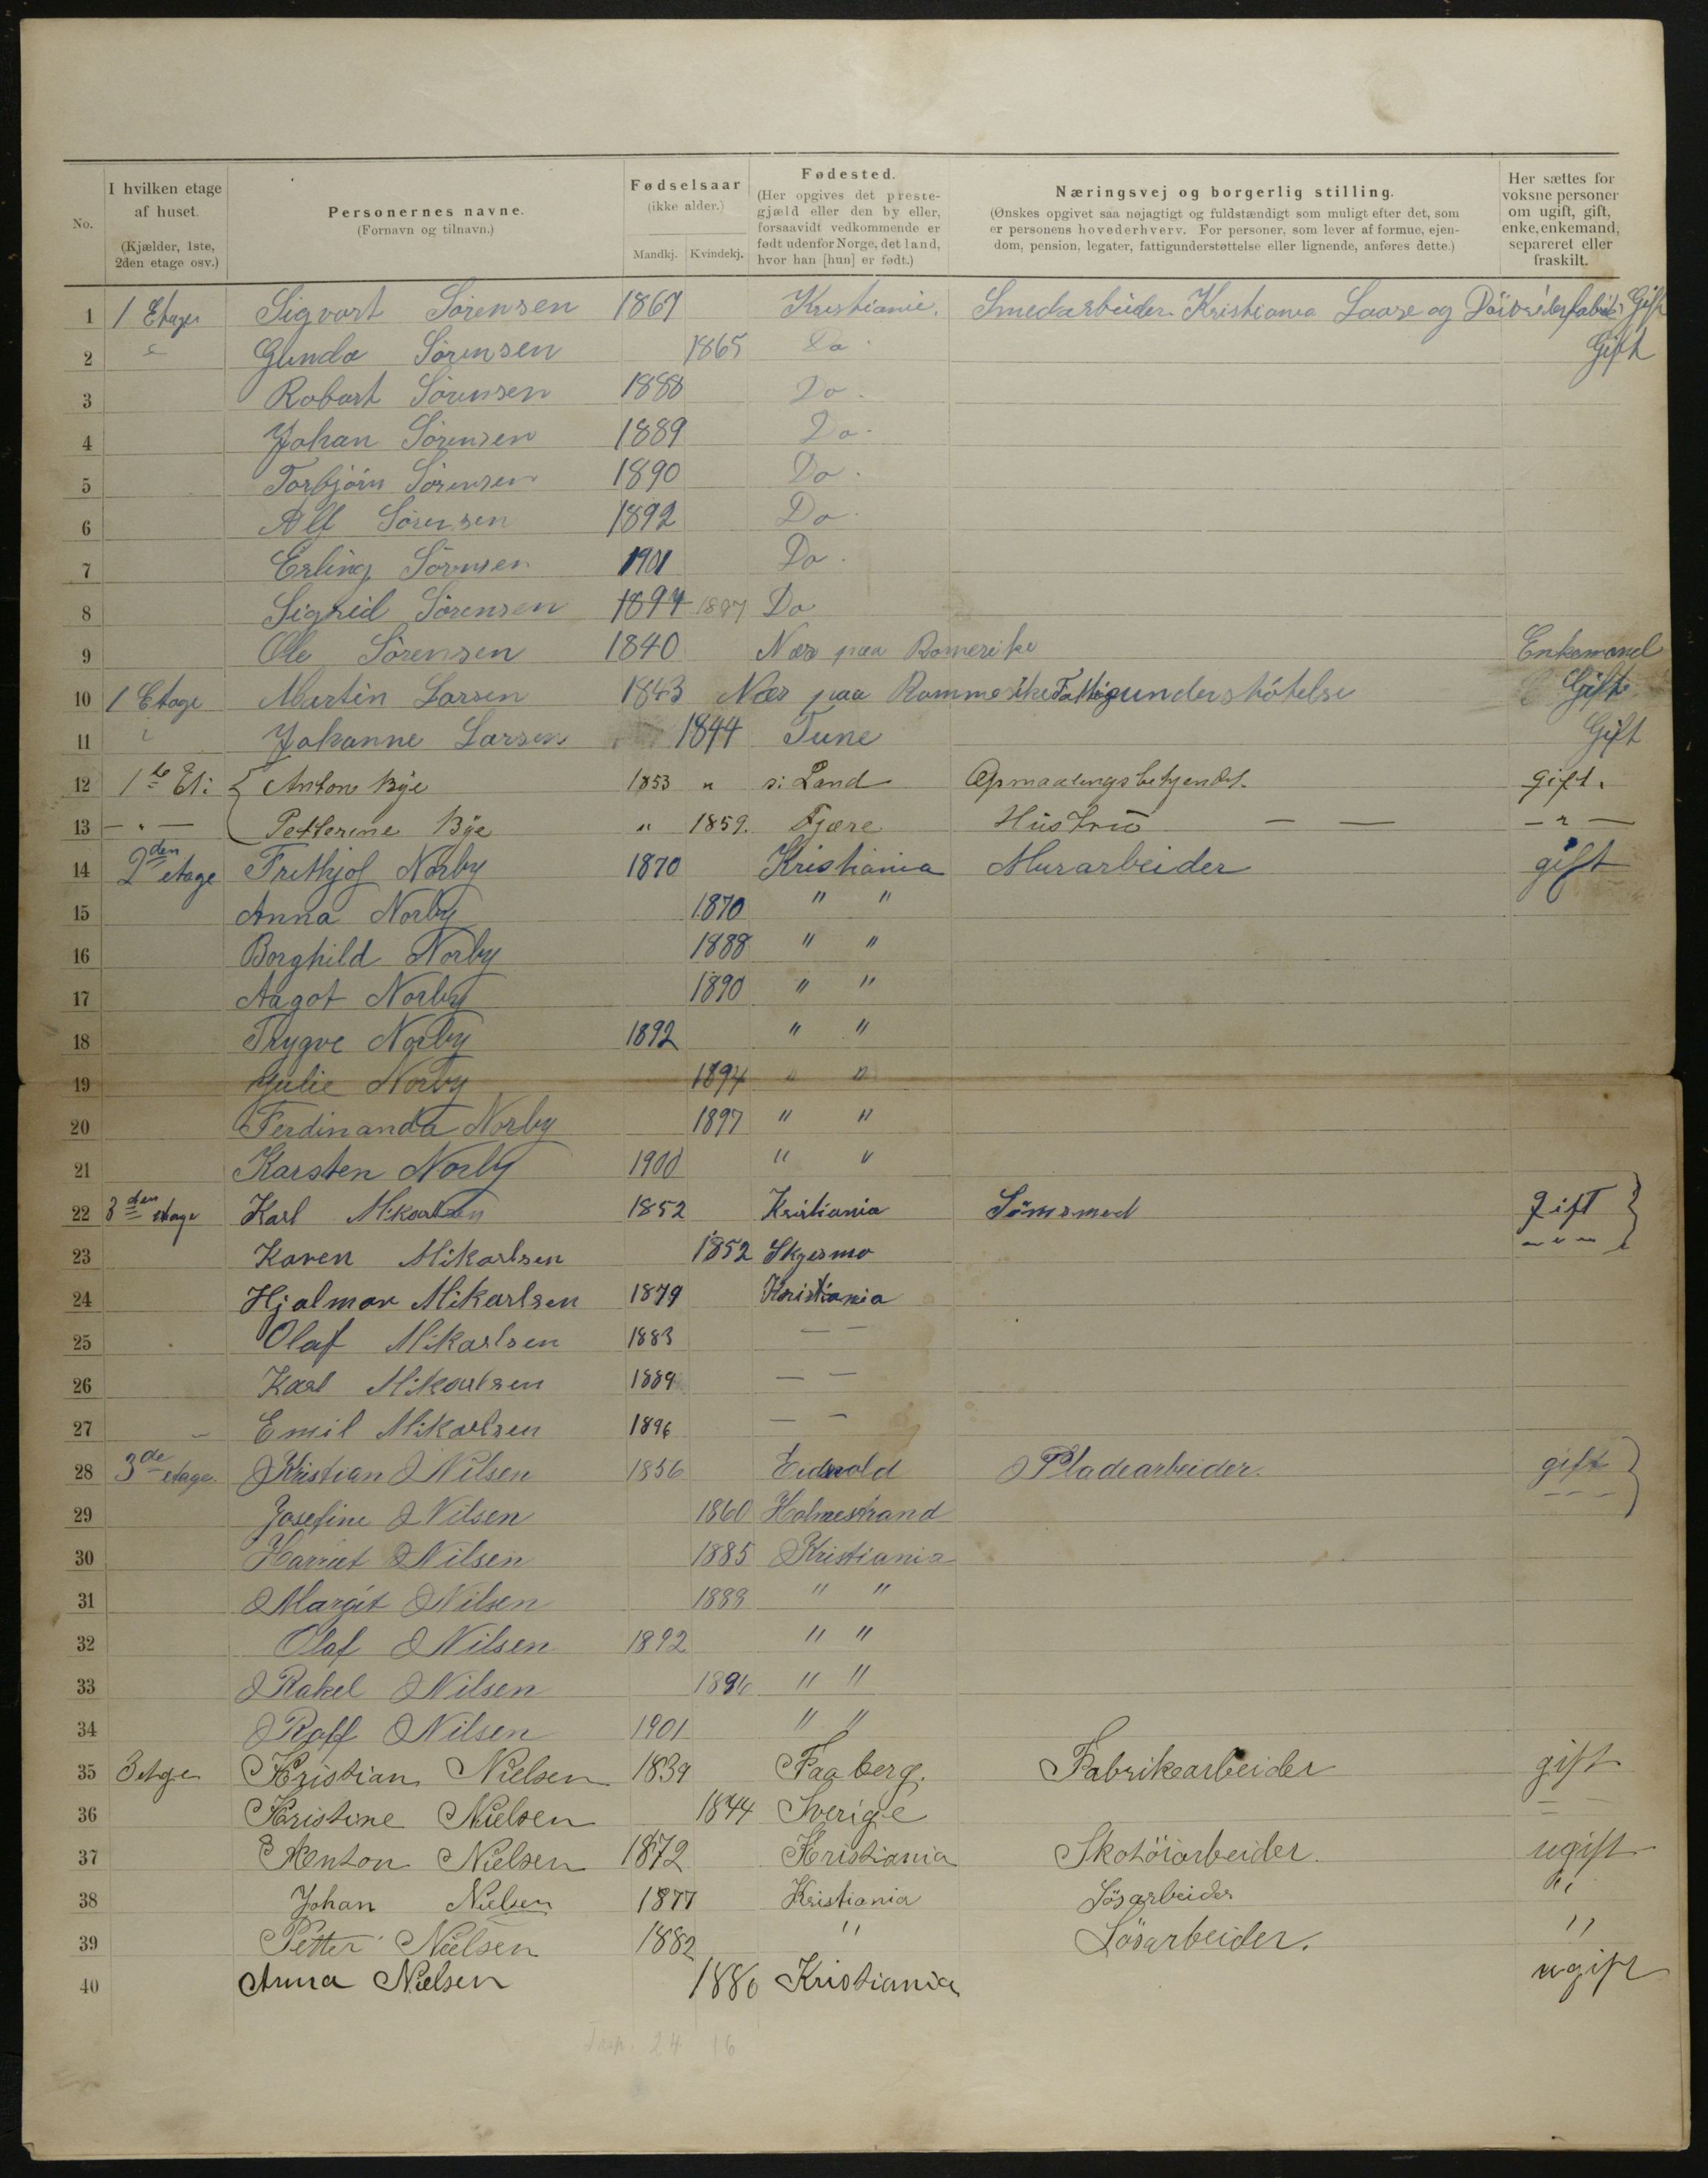 No.
I hvilken etage af huset. (Kjælder, 1ste, 2den etage osv.)
Personernes navne. (Fornavn og tilnavn.)
Fødselsaar (ikke alder.) Mandkj. Kvindekj.
Fødested. (Her opgives det prestegjæld eller den by eller, forsaavidt vedkommende er født udenfor Norge, det land, hvor han [hun] er født.)
Næringsvej og borgerlig stilling. (Ønskes opgivet saa nøjagtigt og fuldstændigt som muligt efter det, som er personens hovederhverv. For personer, som lever af formue, ejendom, pension, legater, fattigunderstøttelse eller lignende, anføres dette.)
Her sættes for voksne personer om ugift, gift, enke, enkemand, separeret eller fraskilt.
1 1 Etage Sigvart Sørensen 1867 Kristiania. Smedarbeider Kristiania Laase og Gift
2 Gunda Sørensen 1865 Do. Gift
3 Robart Sørensen 1888 Do.
4 Johan Sørensen 1889 Do.
5 Torbjørn Sørensen 1890 Do.
6 Alf Sørensen 1892 Do.
7 Erling Sørensen 1901 Do.
8 Sigrid Sørensen 1897 Do
9 Ole Sörensen 1840 Næs paa Romerike Enkemand
10 1 Etage Martin Larsen 1843 Næs paa Rommerike Fattigunderstötelse Gift
11 Johanne Larsen 1844 Tune Gift
12 1ste Et: { Anton Bÿe 1853 " s: Land Opmaalingsbetjendt. gift.
13 — " — Petterine Bÿe " 1859. Fjære Hüstrü — — — " —
14 2den etage Frithjof Norby 1870 Kristiania Murarbeider gift
15 Anna Norby 1870 " "
16 Borghild Norby 1888 " "
17 Aagot Norby 1890 " "
18 Trygve Norby 1892 " "
19 Julie Norby 1894 " "
20 Ferdinanda Norby 1897 " "
21 Karsten Norby 1900 " "
22 3den etage Karl Mikarlsen 1852 Kristiania Sömsmed gift }
23 Karen Mikarlsen 1852 Skjesmo — " —
24 Hjalmar Mikarlsen 1879 Kristiania
25 Olaf Mikarlsen 1883 — —
26 Karl Mikarlsen 1889 — —
27 Emil Mikarlsen 1896 — —
28 3de etage. Kristian Nilsen 1856 Eidsvold Pladearbeider. gift }
29 Josefine Nilsen 1860 Holmestrand — — —
30 Harriet Nilsen 1885 Kristiania
31 Margit Nilsen 1889 " "
32 Olaf Nilsen 1892 " "
33 Rakel Nilsen " "
34 Rolf Nilsen 1901 " "
35 3 etge Kristian Nielsen 1839 Faaberg. Fabrikearbeider gift
36 Kristine Nielsen 1844 Sverige — —
37 Anton Nielsen 1872 Kristiania Skotöiarbeider. ugift
38 Johan Nielsen 1877 Kristiania Lösarbeider "
39 Petter Nielsen 1882 " Lösarbeider. "
40 Anna Nielsen 1886 Kristiania ugift
24 16